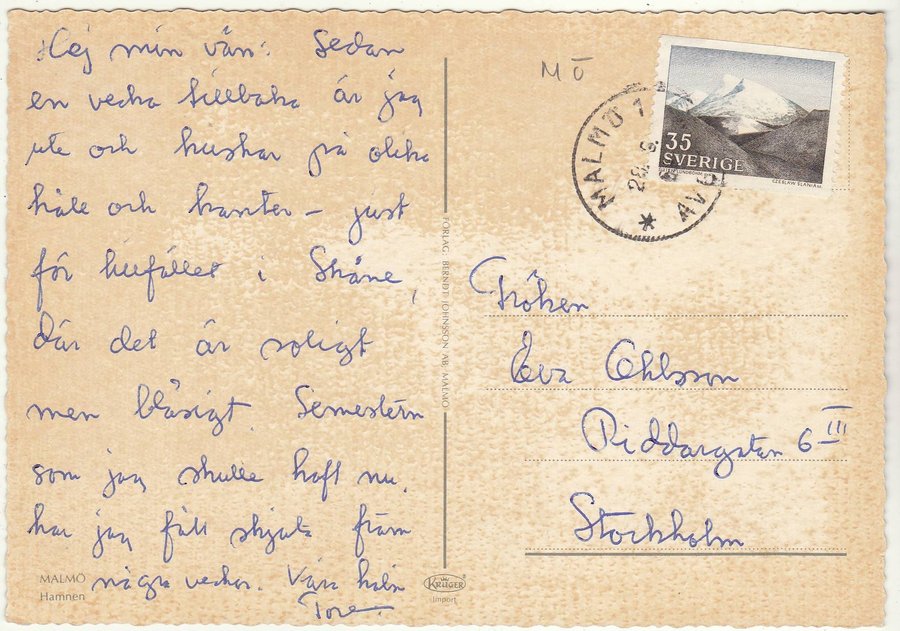 Hej min vän! Sedan
en vecka tillbaka är jag
ute och kuskar på olika
håll och kanter – just
för tillfället i Skåne,
där det är soligt
men blåsigt. Semestern
som jag skulle haft nu,
har jag fått skjuta fram
några veckor. Våra håln
Tore
MALMÖ
Hamnen
FÖRLAG BERNDT JOHNSSON AB, MALMÖ
KRÜGER
Import
MÖ
MALMÖ 1
28. 8
* AVG
35
SVERIGE
CZESLAW SLANIA sc.
Fröken
Eva Ohlsson
Riddargatan 6 III
Stockholm